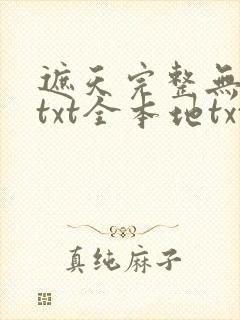 遮天完整無
txt全本地tx
真纯麻子